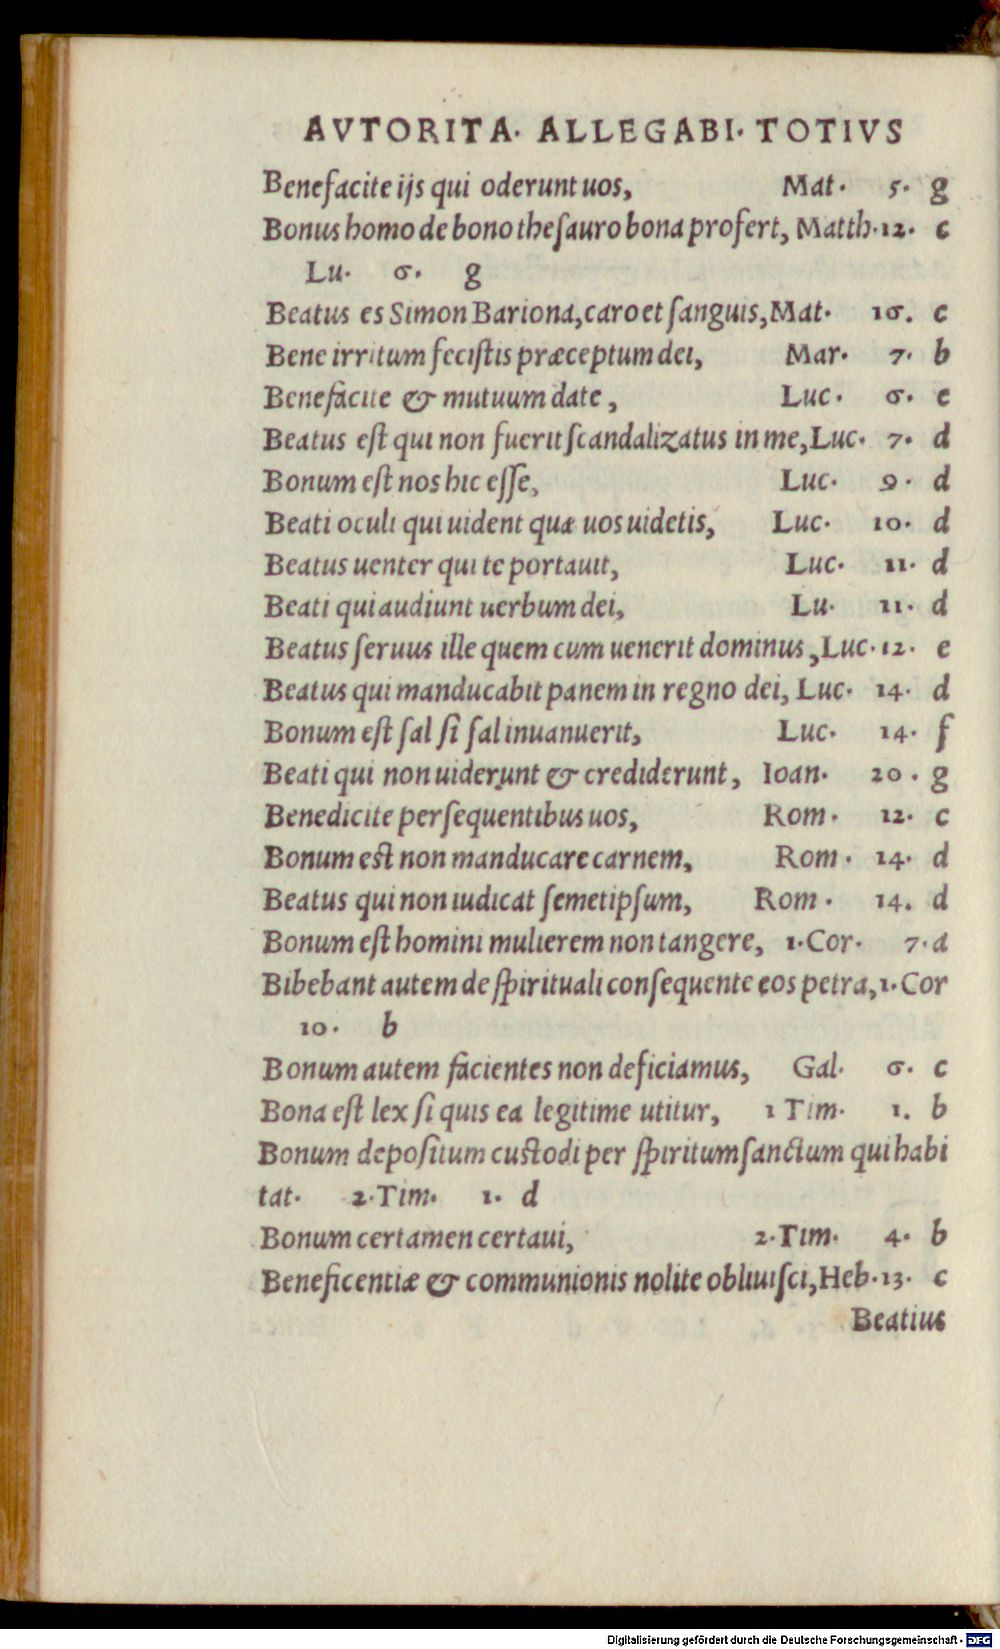 AVTORITA. ALLEGABI. TOTIVS
Benefacite ijs qui oderunt uos, Mat. 5. g
Bonus homo de bono thesauro bona profert, Matth. 12. c
Lu. 6. g
Beatus es Simon Bariona, caro et sanguis, Mat. 16. c
Bene irritum fecistis præceptum dei, Mar. 7. b
Benefacite & mutuum date, Luc. 6. e
Beatus est qui non fuerit scandalizatus in me, Luc. 7. d
Bonum est nos hic esse, Luc. 9. d
Beati oculi qui uident quæ uos uidetis, Luc. 10. d
Beatus uenter qui te portauit, Luc. 11. d
Beati qui audiunt uerbum dei, Lu. 11. d
Beatus seruus ille quem cum uenerit dominus, Luc. 12. e
Beatus qui manducabit panem in regno dei, Luc. 14. d
Bonum est sal si sal inuanuerit, Luc. 14. f
Beati qui non uiderunt & crediderunt, Ioan. 20. g
Benedicite persequentibus uos, Rom. 12. c
Bonum est non manducare carnem, Rom. 14. d
Beatus qui non iudicat semetipsum, Rom. 14. d
Bonum est homini mulierem non tangere, 1. Cor. 7. a
Bibebant autem de spirituali consequente eos petra, 1. Cor
10. b
Bonum autem facientes non deficiamus, Gal. 6. c
Bona est lex si quis ea legitime utitur, 1 Tim. 1. b
Bonum depositum custodi per spiritum sanctum qui habi
tat. 2. Tim. 1. d
Bonum certamen certaui, 2. Tim. 4. b
Beneficentiæ & communionis nolite obliuisci, Heb. 13. c
Beatius
Digitalisierung gefördert durch die Deutsche Forschungsgemeinschaft - DFG